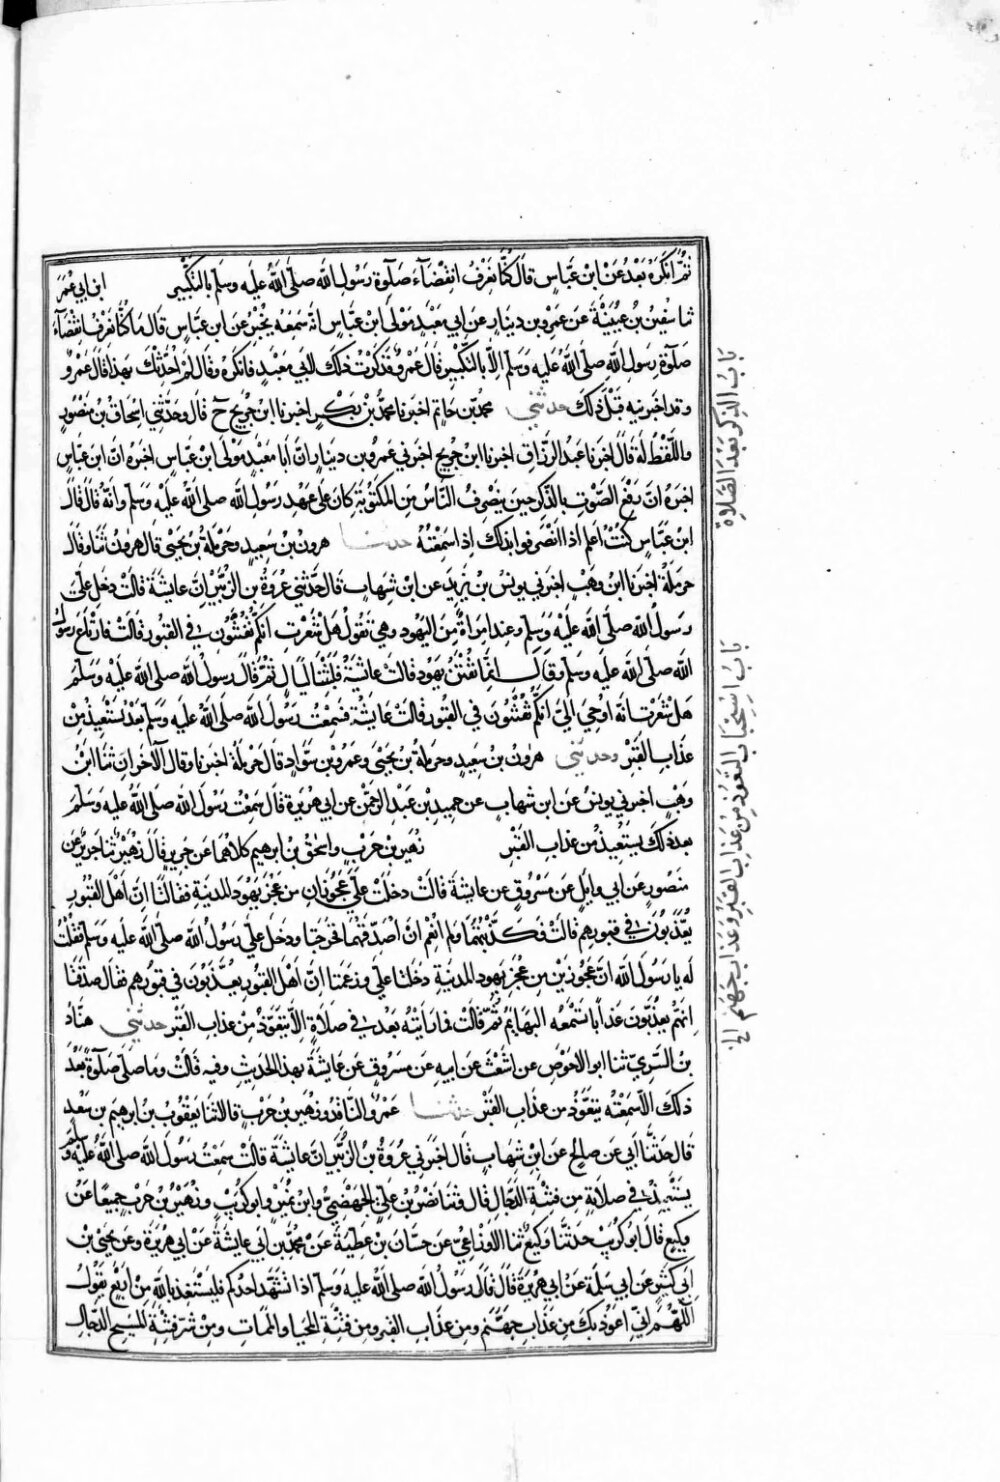 ثم انكره بعد عن ابن عباس قال كنا نعرف انقضآء صلوة رسول الله صلى الله عليه وسلم بالتكبير ابن ابي عمر
ثنا سفين بن عيينة عن عمرو بن دينار عن ابي معبد مولى ابن عباس انه سمعه يخبر عن ابن عباس قال ما كنا نعرف انقضآء
صلوة رسول الله صلى الله عليه وسلم الا بالتكبير قال عمرو فذكرت ذلك لابي معبد فانكره وقال لم احدثك بهذا قال عمرو
وقد اخبرنيه قبل ذلك حدثني محمد بن حاتم اخبرنا محمد بن بكر اخبرنا ابن جريج ح قال وحدثني اسحاق بن منصور
واللفظ له قال اخبرنا عبد الرزاق اخبرنا ابن جريج اخبرني عمرو بن دينار ان ابا معبد مولى ابن عباس اخبره ان ابن عباس
اخبره ان رفع الصوت بالذكر حين ينصرف الناس من المكتوبة كان على عهد رسول الله صلى الله عليه وسلم وانه قال قال
ابن عباس كنت اعلم اذا انصرفوا بذلك اذا سمعته حدثنا هرون بن سعيد وحرملة بن يحيى قال هرون ثنا وقال
حرملة اخبرنا ابن وهب اخبرني يونس بن يزيد عن ابن شهاب قال حدثني عروة بن الزبير ان عايشة قالت دخل علي
رسول الله صلى الله عليه وسلم وعندي امراة من اليهود وهي تقول هل شعرت انكم تفتنون في القبور قالت فارتاع رسول
الله صلى الله عليه وسلم وقال انما تفتن يهود قالت عايشة فلبثنا ليالي ثم قال رسول الله صلى الله عليه وسلم
هل شعرت انه اوحي الي انكم تفتنون في القبور قالت عايشة فسمعت رسول الله صلى الله عليه وسلم بعد يستعيذ من
عذاب القبر وحدثني هرون بن سعيد وحرملة بن يحيى وعمرو بن سواد قال حرملة اخبرنا وقال الآخران ثنا ابن
وهب اخبرني يونس عن ابن شهاب عن حميد بن عبد الرحمن عن ابي هريرة قال سمعت رسول الله صلى الله عليه وسلم
بعد ذلك يستعيذ من عذاب القبر زهير بن حرب واسحق بن ابرهيم كلاهما عن جرير قال زهير ثنا جرير عن
منصور عن ابي وايل عن مسروق عن عايشة قالت دخلت علي عجوزان من عجز يهود المدينة فقالتا ان اهل القبور
يعذبون في قبورهم قالت فكذبتهما ولم انعم ان اصدقهما فخرجتا ودخل علي رسول الله صلى الله عليه وسلم فقلت
له يا رسول الله ان عجوزين من عجز يهود المدينة دخلتا علي وزعمتا ان اهل القبور يعذبون في قبورهم فقال صدقتا
انهم يعذبون عذابا تسمعه البهايم ثم قالت فما رايته بعد في صلاة الا يتعوذ من عذاب القبر حدثني هناد
بن السري ثنا ابو الاحوص عن اشعث عن ابيه عن مسروق عن عايشة بهذا الحديث وفيه قالت وما صلى صلوة بعد
ذلك الا سمعته يتعوذ من عذاب القبر حدثنا عمرو الناقد وزهير بن حرب قالا ثنا يعقوب بن ابرهيم بن سعد
قال حدثنا ابي عن صالح عن ابن شهاب قال اخبرني عروة بن الزبير ان عايشة قالت سمعت رسول الله صلى الله عليه وسلم
يستعيذ في صلاته من فتنة الدجال قال وثنا نصر بن علي الجهضمي وابن نمير وابو كريب وزهير بن حرب جميعا عن
وكيع قال ابو كريب حدثنا وكيع ثنا الاوزاعي عن حسان بن عطية عن محمد بن ابي عايشة عن ابي هريرة وعن يحيى بن
ابي كثير عن ابي سلمة عن ابي هريرة قال قال رسول الله صلى الله عليه وسلم اذا تشهد احدكم فليستعذ بالله من اربع يقول
اللهم اني اعوذ بك من عذاب جهنم ومن عذاب القبر ومن فتنة المحيا والممات ومن شر فتنة المسيح الدجال
باب الذكر بعد الصلاة
باب استحباب التعوذ من عذاب القبر وعذاب جهنم الخ